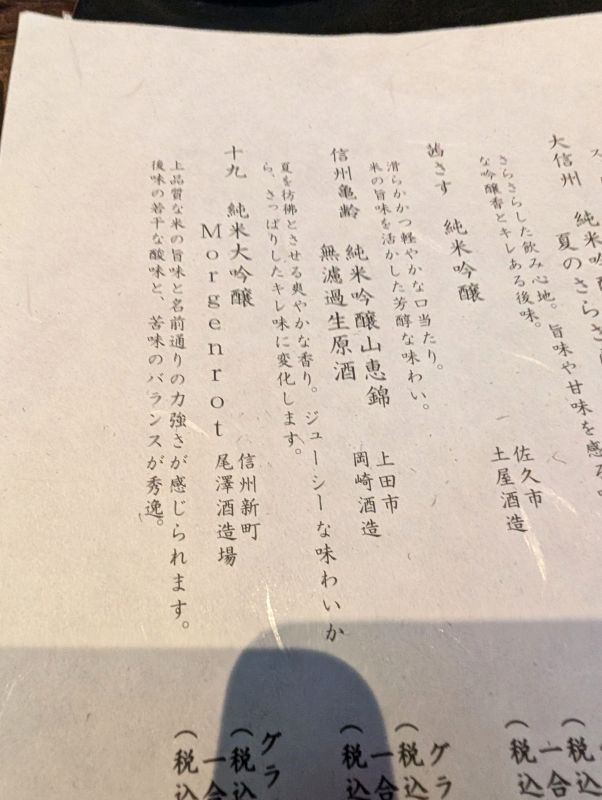 大信州
夏のさら
さらさらした飲み心地。旨味や甘味を感
な吟醸香とキレある後味。
茜さす 純米吟醸
佐久市
土屋酒造
滑らかかつ軽やかな口当たり。
米の旨味を活かした芳醇な味わい。
信州亀齢 純米吟醸山恵錦
無濾過生原酒
上田市
岡崎酒造
夏を彷彿とさせる爽やかな香り。ジューシーな味わいか
ら、さっぱりしたキレ味に変化します。
十九 純米大吟醸
Morgenrot
信州新町
尾澤酒造場
上品質な米の旨味と名前通りの力強さが感じられます。
後味の若干な酸味と、苦味のバランスが秀逸。
(税込
一合
(税込
グラ
(税込
一合
(税込
グラ
(税込
一合
(税込